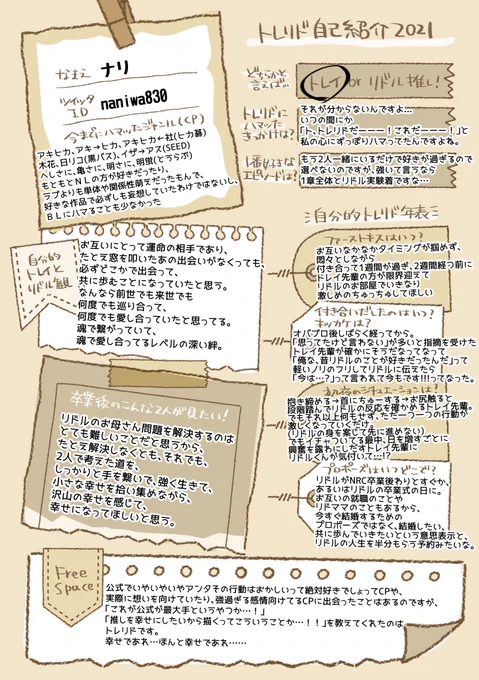 トレリド自己紹介2021
なまえ ナリ
ツイッタID naniwa830
今までにハマったジャンル(CP)
アキヒカ、アキ→ヒカ、アキヒカ←社(ヒカ碁)
木花、日リコ(黒バス)、イザ→アス(SEED)
へしさに、亀さに、明さに、明蛍(とうらぶ)
もともとNLの方が好きだったり、
ラブよりも単体や関係性萌えだったもんで、
好きな作品で必ずしも妄想していたわけではないし、
BLにハマることも少なかった
どちらかと言えば…
トレイ or リドル推し!
トレリドにハマったきっかけは?
それが分からないんですよ…
いつの間にか
「ト、トレリドだーーー!これだーーー!」と
私の心にずっぽりハマってたんですよね。
1番好きなエピソードは?
もう2人一緒にいるだけで好きが過ぎるので
選べないのですが、強いて言うなら
1章全体とリドル実験着ですな…
自分的トレイとリドル観
お互いにとって運命の相手であり、
たとえ窓を叩いたあの出会いがなくても、
必ずどこかで出会って、
共に歩むことになっていたと思う。
なんなら前世でも来世でも
何度でも巡り合って、
何度でも愛し合っていたと思ってる。
魂で繋がっていて、
魂で愛し合てるレベルの深い絆。
自分的トレリド年表
ファーストキスはいつ?
お互いなかなかタイミングが掴めず、
悶々としながら
付き合って1週間が過ぎ、2週間経つ前に
トレイ先輩の方が限界迎えて
リドルのお部屋でいきなり
激しめのちゅうちゅしてほしい
付き合いだしたのはいつ?キッカケは?
オバブロ後しばらく経ってから。
「思ってたけど言わない」が多いと指摘を受けた
トレイ先輩が確かにそうだなってなって
「俺な、昔リドルのことが好きだったんだ」って
軽いノリのフリしてリドルに伝えたら
「今は…?」って言われて今もです!!!ってなった。
初夜のシチュエーションは?
抱き締める→首にちゅーする→お尻触ると
段階踏んでリドルの反応を確かめるトレイ先輩。
でもそれ以上何もせず、ただ一つ一つの行動が
激しくなっていくだけ。
(リドルの身を案じて先に進めない)
でもイチャついてる最中、日を増すごとに
興奮を露わにしだすトレイ先輩に
リドルくんが気付いて…!?
プロポーズはいつどこで?
リドルがNRC卒業後わりとすぐか、
あるいはリドルの卒業式の日に。
お互いの就職のことや
リドママのこともあるから、
今すぐ結婚するための
プロポーズではなく、結婚したい、
共に歩んでいきたいという意思表示と、
リドルの人生を半分もらう予約みたいな。
卒業後のこんな2人が見たい!
リドルのお母さん問題を解決するのは
とても難しいことだと思うから、
たとえ解決しなくとも、それでも、
2人で考えた道を、
しっかりと手を繋いで、強く生きて、
小さな幸せを拾い集めながら、
沢山の幸せを感じて、
幸せになってほしいと思う。
Free Space
公式でいやいやいやアンタその行動はおかしいって絶対好きでしょってCPや、
実際に想いを向けていたり、強過ぎる感情向けてるCPに出会ったことはあるのですが、
「これが公式が最大手というやつか…!」
「推しを幸せにしたいから描くってこういうことか…!!」を教えてくれたのは
トレリドです。
幸せであれ…ほんと幸せであれ……